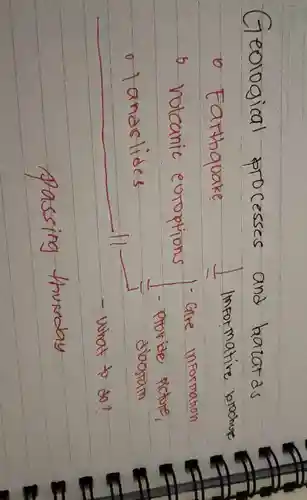 Geological processes and hazards
o Earthquake
Informative brochure
o Volcanic europtions
- Give information
o landslides
- provide picture,
diagram
- What to do?
Passing thursday